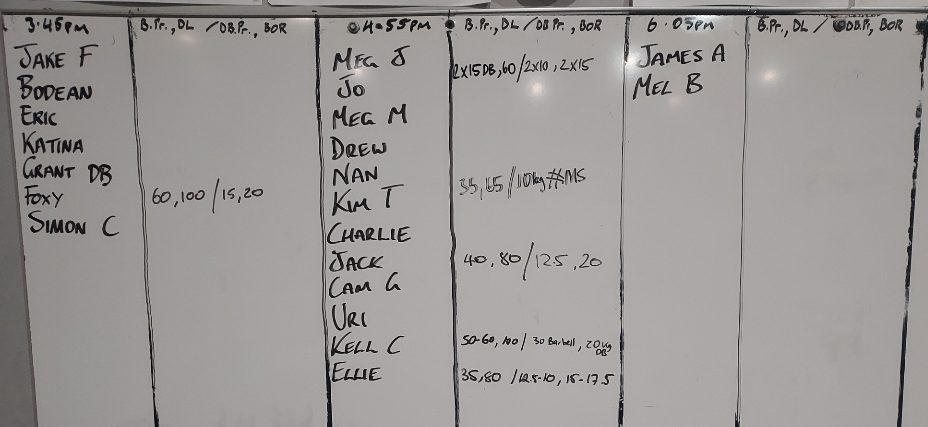 3.45pm B.Pr., DL / DB.Pr., BOR
JAKE F
BODEAN
ERIC
KATINA
GRANT DB
FOXY 60,100 / 15,20
SIMON C
4.55pm B.Pr., DL / DB.Pr., BOR
MEG J 2x15DB, 60 / 2x10, 2x15
JO
MEG M
DREW
NAN
35, 65 / 10kg #MS
KIM T
CHARLIE
JACK 40, 80 / 12.5, 20
CAM G
URI
KELL C 50-60, 100 / 30 Barbell, 20kg DB
ELLIE 35,80 / 12.5-10, 15-17.5
6.05pm B.Pr., DL / DB.P., BOR
JAMES A
MEL B